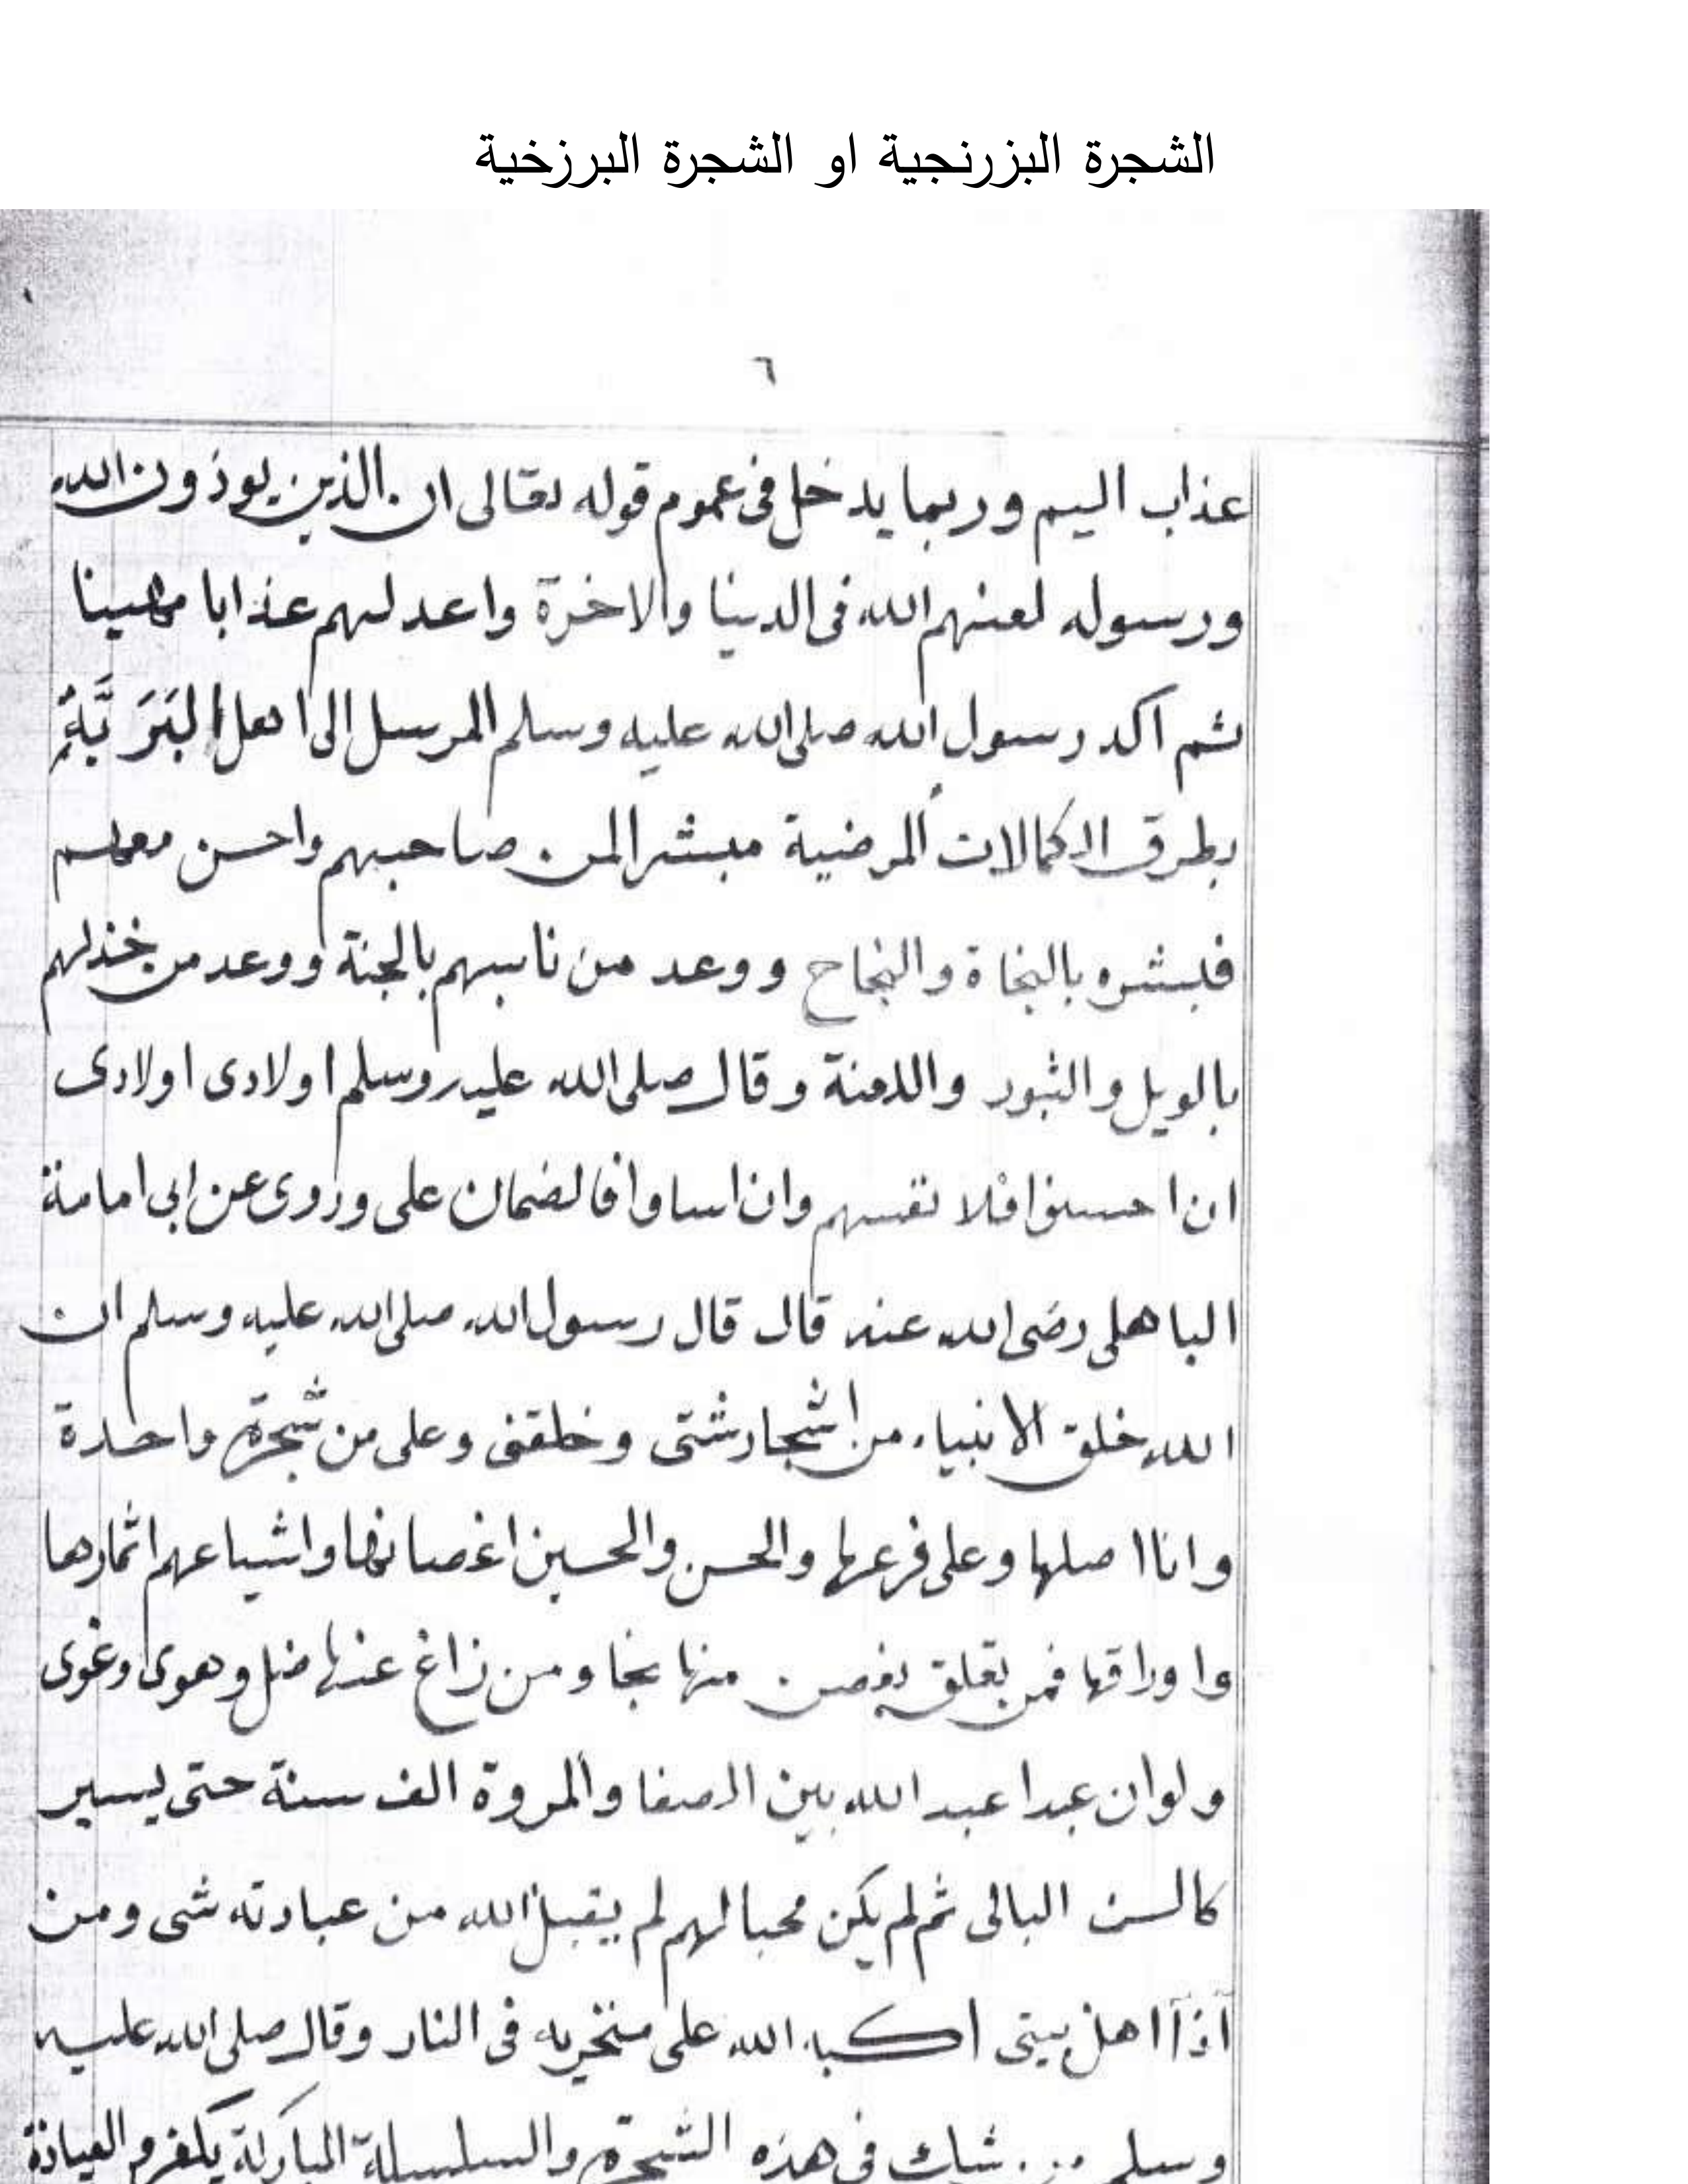 الشجرة البزرنجية او الشجرة البرزخية
٦
عذاب اليم وربما يدخل فى عموم قوله تعالى ان الذين يوذون الله
ورسوله لعنهم الله فى الدنيا والاخرة واعد لهم عذابا مهينا
ثم اكد رسول الله صلى الله عليه وسلم المرسل الى اهل البَرَيَّةِ
بطرق الاكمالات المرضية مبشرا لمن صاحبهم واحسن معهم
فبشره بالنجاة والنجاح ووعد من ناسبهم بالجنة ووعد من خذلهم
بالويل والثبور واللعنة وقال صلى الله عليه وسلم اولادى اولادى
ان احسنوا فلا نفسهم وان اساوا فالضمان على وروى عن ابى امامة
الباهلى رضى الله عنه قال قال رسول الله صلى الله عليه وسلم ان
الله خلق الانبياء من اشجار شتى وخلقنى وعلى من شجرة واحدة
وانا اصلها وعلى فرعها والحسن والحسين اغصانها واشياعهم اثمارها
واوراقها فمن تعلق بغصن منها نجا ومن زاغ عنها ضل وهوى وغوى
ولو ان عبدا عبد الله بين الصفا والمروة الف سنة حتى يسير
كالسن البالى ثم لم يكن محبا لهم لم يقبل الله من عبادته شى ومن
آذآ اهل بيتى اكبه الله على منخريه فى النار وقال صلى الله عليه
وسلم من شك فى هذه الشجرة والسلسلة المباركة يكفر والعياذة